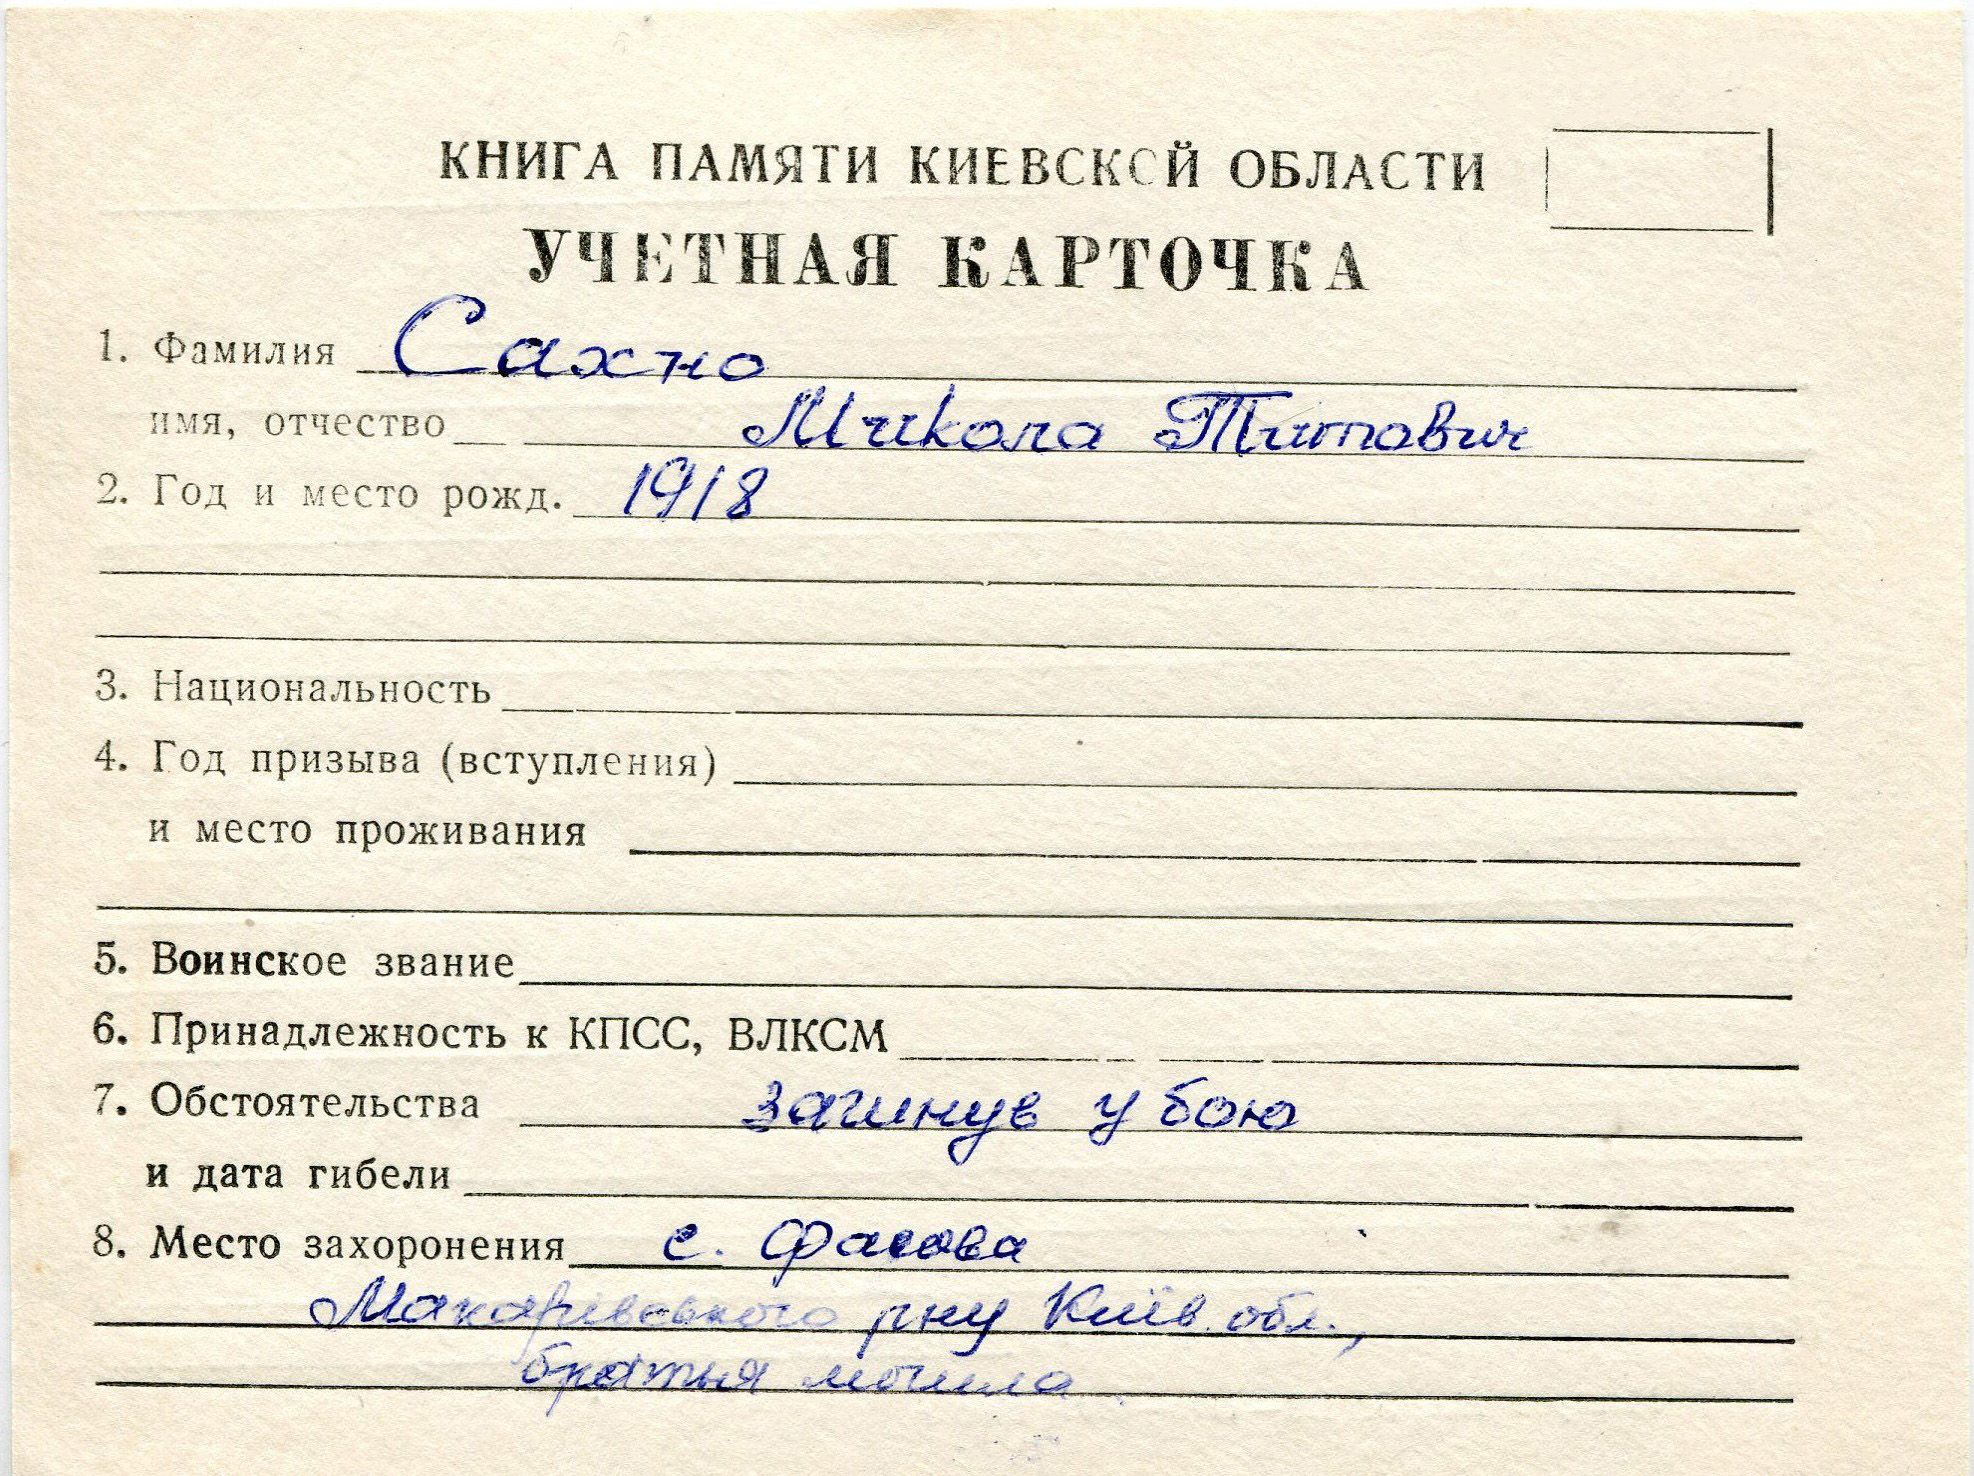 КНИГА ПАМЯТИ КИЕВСКОЙ ОБЛАСТИ
УЧЕТНАЯ КАРТОЧКА
1. Фамилия Сахно
имя, отчество Микола Титович
2. Год и место рожд. 1918
3. Национальность
4. Год призыва (вступления)
и место проживания
5. Воинское звание
6. Принадлежность к КПСС, ВЛКСМ
7. Обстоятельства загинув у бою
и дата гибели
8. Место захоронения с. Фасова
Макарівського рну Київ. обл.,
братня могила